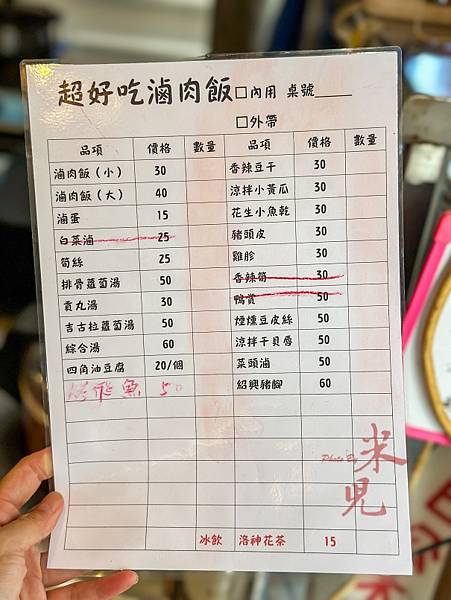 超好吃滷肉飯 □內用 桌號____
□外帶
品項 價格 數量 品項 價格 數量
滷肉飯（小） 30 香辣豆干 30
滷肉飯（大） 40 涼拌小黃瓜 30
滷蛋 15 花生小魚乾 30
白菜滷 25 豬頭皮 30
筍絲 25 雞胗 30
排骨蘿蔔湯 50 香辣筍 30
貢丸湯 30 鴨賞 50
吉古拉蘿蔔湯 50 煙燻豆皮絲 50
綜合湯 60 涼拌干貝唇 50
四角油豆腐 20/個 菜頭滷 50
飛魚 50 紹興豬腳 60
Photo By 米兒
冰飲 洛神花茶 15